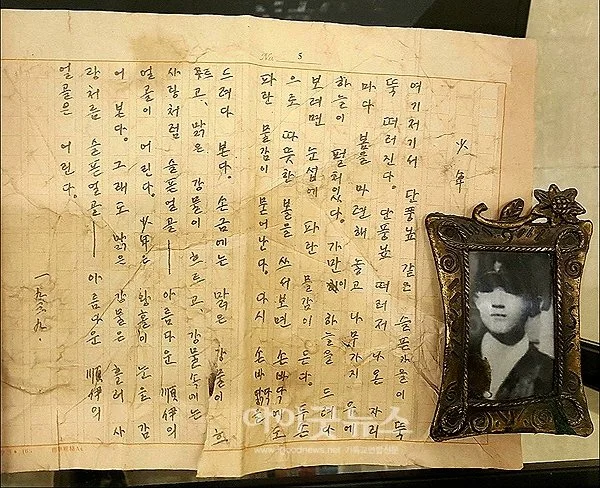 No. 5
少年
여기저기서 단풍닢 같은 슬픈가을이 뚝
뚝 떠러진다. 단풍닢 떠러저 나온 자리
마다 봄을 마련해 놓고 나무가지 우에
하늘이 펄처있다. 가만이 하늘을 드려다
보려면 눈섭에 파란 물감이 든다. 두손
으로 따뜻한 볼을 쓰서보면 손바닥에도
파란 물감이 묻어난다. 다시 손바닥을
드려다 본다. 손금에는 맑은 강물이 흐
르고, 맑은 강물이 흐르고, 강물속에는
사랑처럼 슬픈얼골——아름다운 順伊의
얼골이 어린다. 少年은 황홀히 눈을 감
어 본다. 그래도 맑은 강물은 흘러 사
랑처름 슬픈얼골——아름다운 順伊의
얼골은 어린다.
一九三九.
아이굿뉴스
www.igoodnews.net 기독교연합신문